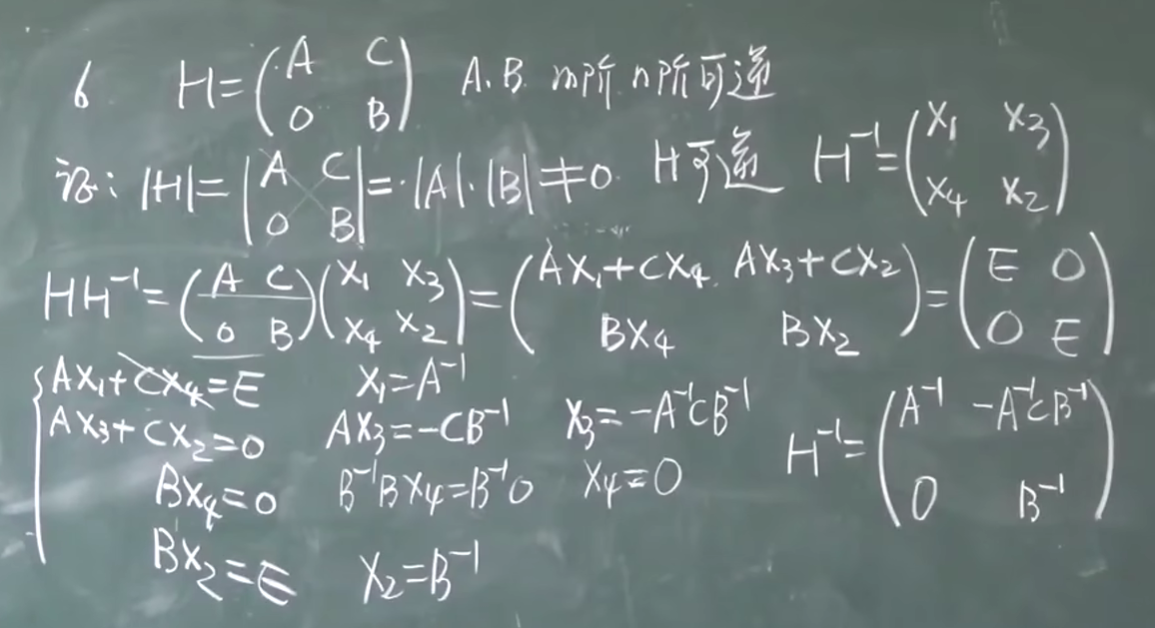 6 H=(A C; 0 B) A.B. m阶.n阶可逆
证: |H|=|A C; 0 B|=·|A|·|B|≠0. H可逆 H⁻¹=(X₁ X₃; X₄ X₂)
HH⁻¹=(A C; 0 B)(X₁ X₃; X₄ X₂)=(AX₁+CX₄. AX₃+CX₂; BX₄ BX₂)=(E 0; 0 E)
AX₁+CX₄=E X₁=A⁻¹
AX₃+CX₂=0 AX₃=-CB⁻¹ X₃=-A⁻¹CB⁻¹ H⁻¹=(A⁻¹ -A⁻¹CB⁻¹; 0 B⁻¹)
BX₄=0 B⁻¹BX₄=B⁻¹0 X₄=0
BX₂=E X₂=B⁻¹